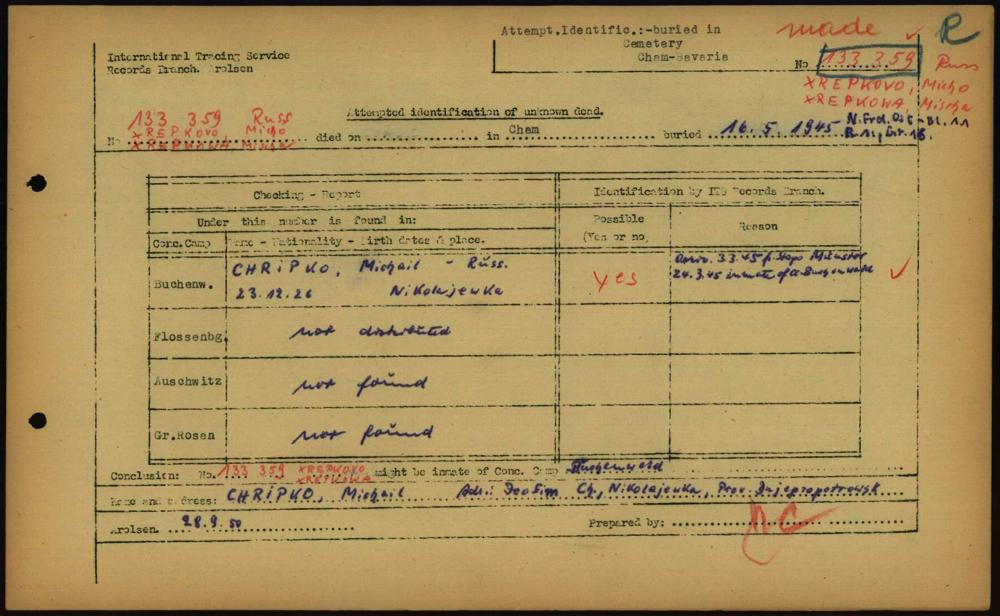 Attempt.Identific.:-buried in
Cemetery
Cham-Bavaria
made ✓ R
No 133 359 Russ
XREPKOVO, Micho
XREPKOWA, Mischa
International Tracing Service
Records Branch. Arolsen
Attempted identification of unknown dead.
133 359 Russ
XREPKOVO, Micho
No XREPKOWA Mischa died on in Cham buried 16. 5. 1945
Checking - Report
Identification by ITS Records Branch.
Under this number is found in:
Possible
(Yes or no,
Reason
Conc.Camp
Name - Nationality - Birth dates & place.
Buchenw.
CHRiPKO, Michail - Russ.
23.12.26 Nikolajewka
yes
24.3.45 inmate of
✓
Flossenbg.
not distributed
Auschwitz
not found
Gr.Rosen
not found
Conclusion: No. 133 359 XREPKOVO
XREPKOWA
might be inmate of Conc. Camp Buchenwald
Name and address: CHRiPKO, Michail Ch., Nikolajewka, Prov. Dnjepropetrowsk
Arolsen. 28.9.50
Prepared by: